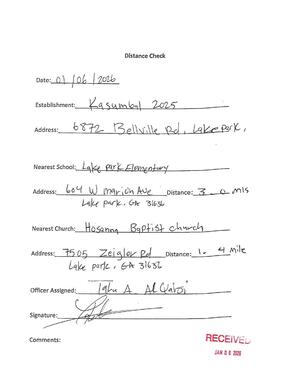 Distance Check
Date: 01/06/2026
Establishment: Kasumbal 2025
Address: 6872 Bellville Rd, Lake Park,
Nearest School: Lake Park Elementary
Address: 604 W Marion Ave Distance: 3.0 mls
Lake park, GA 31636
Nearest Church: Hosanna Baptist church
Address: 7505 Zeigler Rd Distance: 1.4 mile
Lake park, GA 31636
Officer Assigned: A Al
Signature:
Comments:
RECEIVED
JAN 06 2026